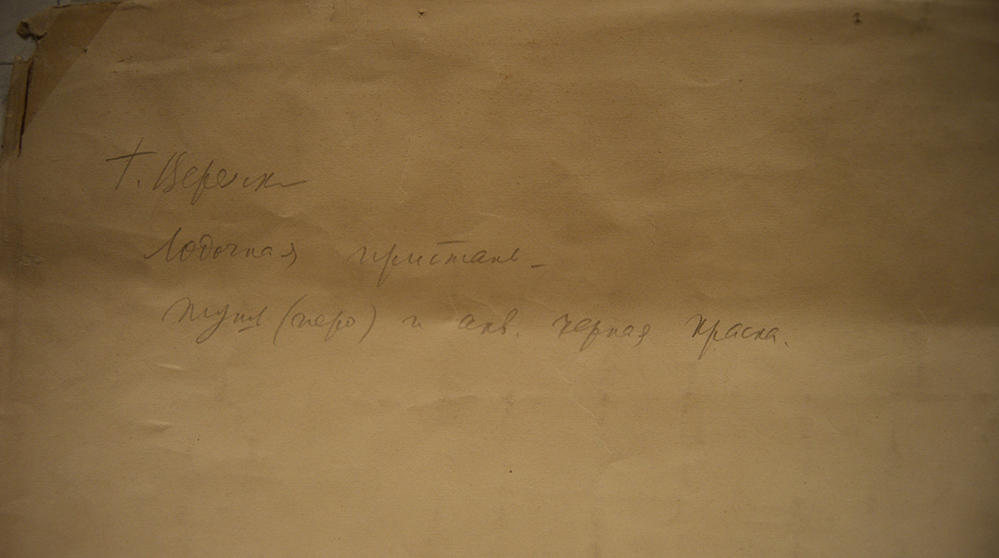 Г. Верейск
Лодочная пристань
тушь (перо) и акв. черная краска.